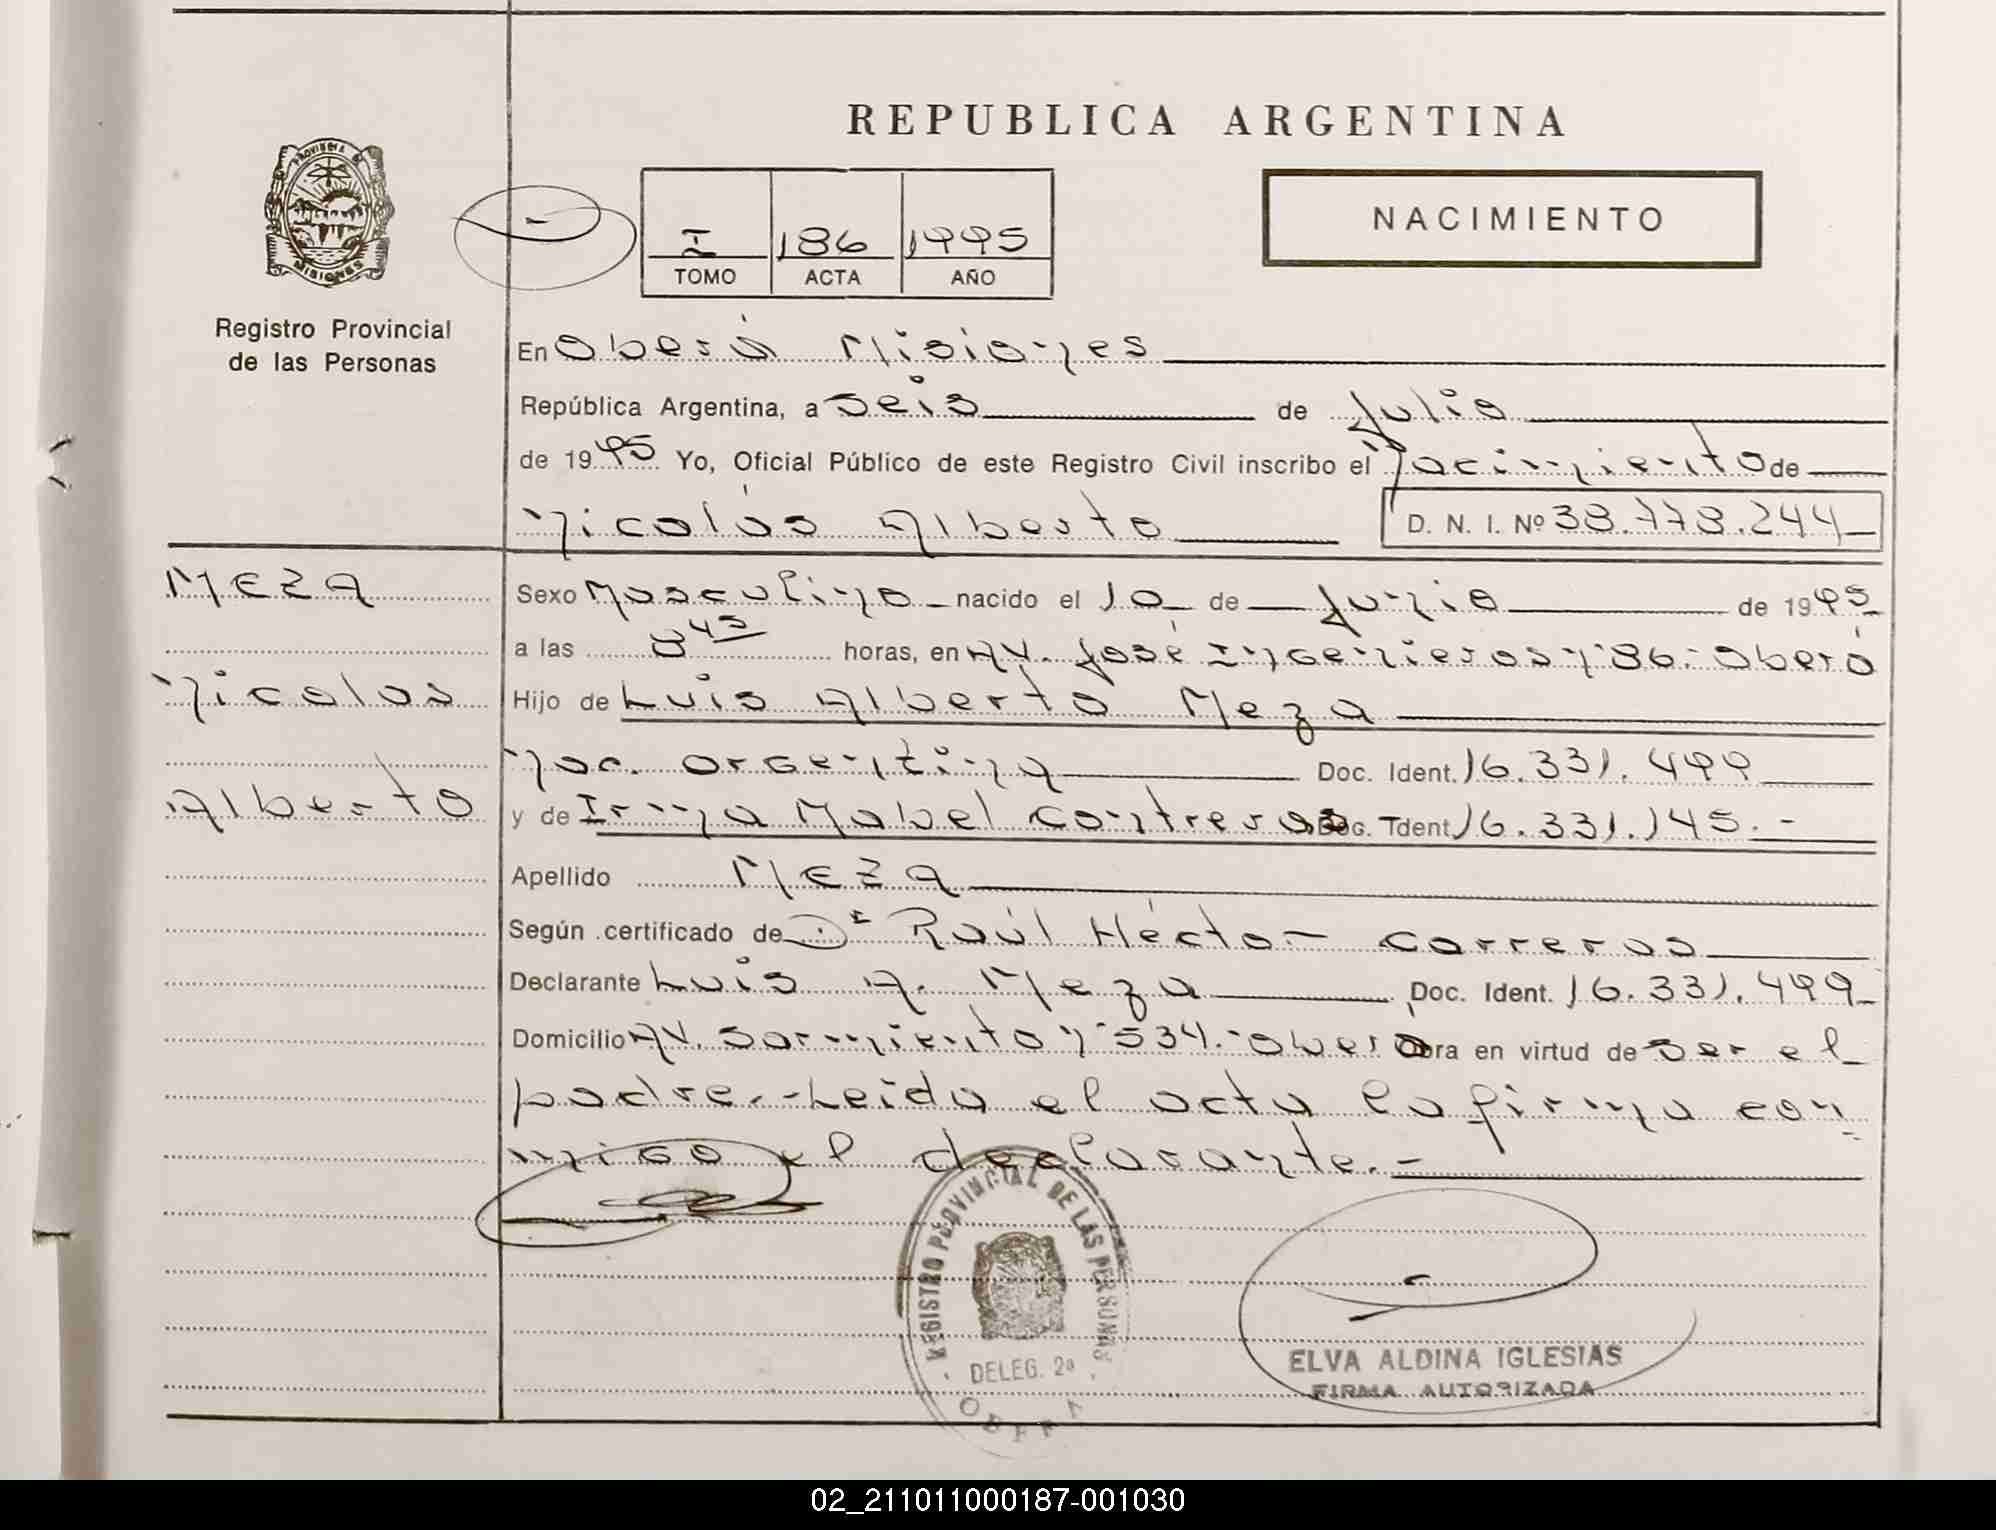 REPUBLICA ARGENTINA
PROVINCIA DE
MISIONES
Registro Provincial
de las Personas
I 186 1995
TOMO ACTA AÑO
NACIMIENTO
En Oberá Misiones
República Argentina, a seis de Julio
de 1995 Yo, Oficial Público de este Registro Civil inscribo el Nacimiento de
Nicolás Alberto D. N. I. Nº 38.778.244
MEZA
Nicolas
Alberto
Sexo Masculino nacido el 10 de Junio de 1995
a las 8 45 horas, en AV. José Ingenieros nº 86.- Oberá
Hijo de Luis Alberto Meza
Nac. argentina Doc. Ident. 16.331.499
y de Irma Mabel Contreras Doc. Ident 16.331.145.-
Apellido MEZA
Según certificado de Dr Raúl Héctor Carreras
Declarante Luis A. Meza Doc. Ident. 16.331.499
Domicilio AV. Sarmiento nº 534.- Oberá Obra en virtud de ser el
padre.- Leída el acta la firma con
migo el declarante.-
REGISTRO PROVINCIAL DE LAS PERSONAS
DELEG. 2ª
OBERA
ELVA ALDINA IGLESIAS
FIRMA AUTORIZADA
02_211011000187-001030